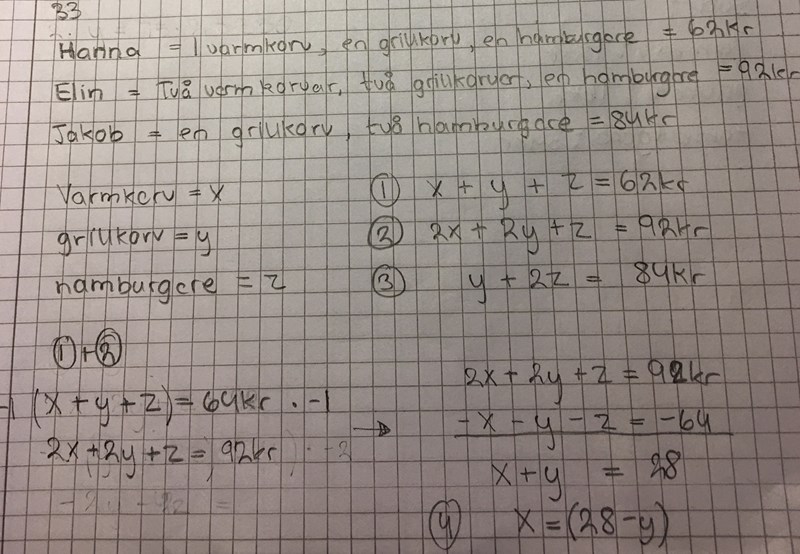 33
Hanna = 1 varmkorv, en grillkorv, en hamburgare = 62kr
Elin = Två varmkorvar, två grillkorvar, en hamburgare = 92kr
Jakob = en grillkorv, två hamburgare = 84kr
Varmkorv = x ① x + y + z = 62kr
grillkorv = y ② 2x + 2y + z = 92kr
hamburgare = z ③ y + 2z = 84kr
①+②
2x + 2y + z = 92kr
-1 (x + y + z) = 64kr · -1 → -x - y - z = -64
2x + 2y + z = 92kr · -2
x + y = 28
④ x = (28 - y)